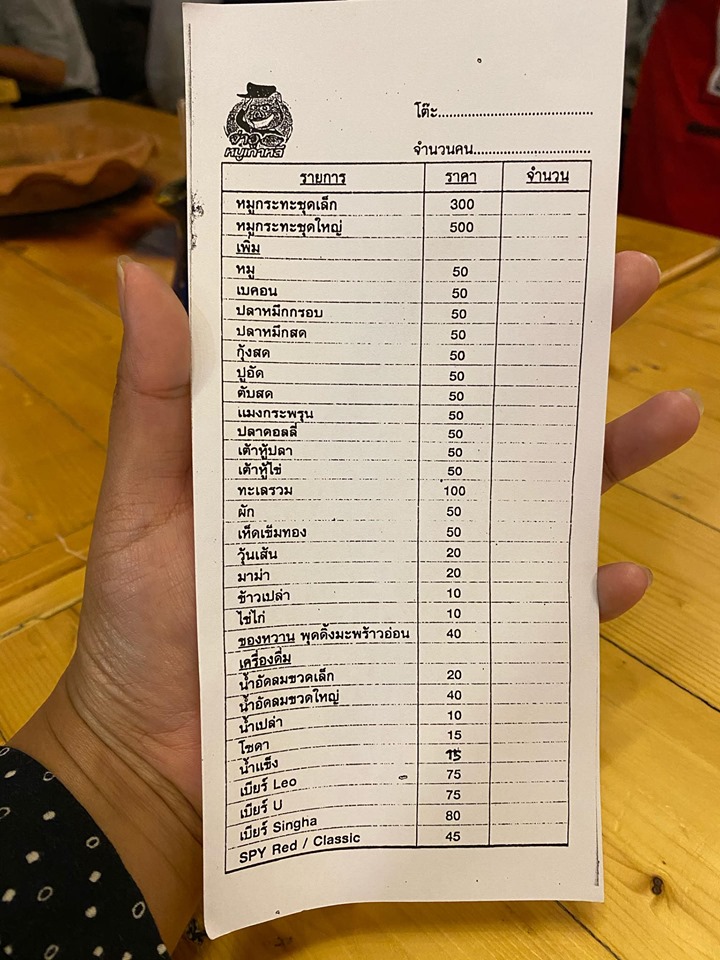 จ่าอ้วน
หมูเกาหลี
โต๊ะ........................................
จำนวนคน...............................
รายการ ราคา จำนวน
หมูกระทะชุดเล็ก 300
หมูกระทะชุดใหญ่ 500
เพิ่ม
หมู 50
เบคอน 50
ปลาหมึกกรอบ 50
ปลาหมึกสด 50
กุ้งสด 50
ปูอัด 50
ตับสด 50
แมงกระพรุน 50
ปลาดอลลี่ 50
เต้าหู้ปลา 50
เต้าหู้ไข่ 50
ทะเลรวม 100
ผัก 50
เห็ดเข็มทอง 50
วุ้นเส้น 20
มาม่า 20
ข้าวเปล่า 10
ไข่ไก่ 10
ของหวาน พุดดิ้งมะพร้าวอ่อน 40
เครื่องดื่ม
น้ำอัดลมขวดเล็ก 20
น้ำอัดลมขวดใหญ่ 40
น้ำเปล่า 10
โซดา 15
น้ำแข็ง 15
เบียร์ Leo 75
เบียร์ U 75
เบียร์ Singha 80
SPY Red / Classic 45